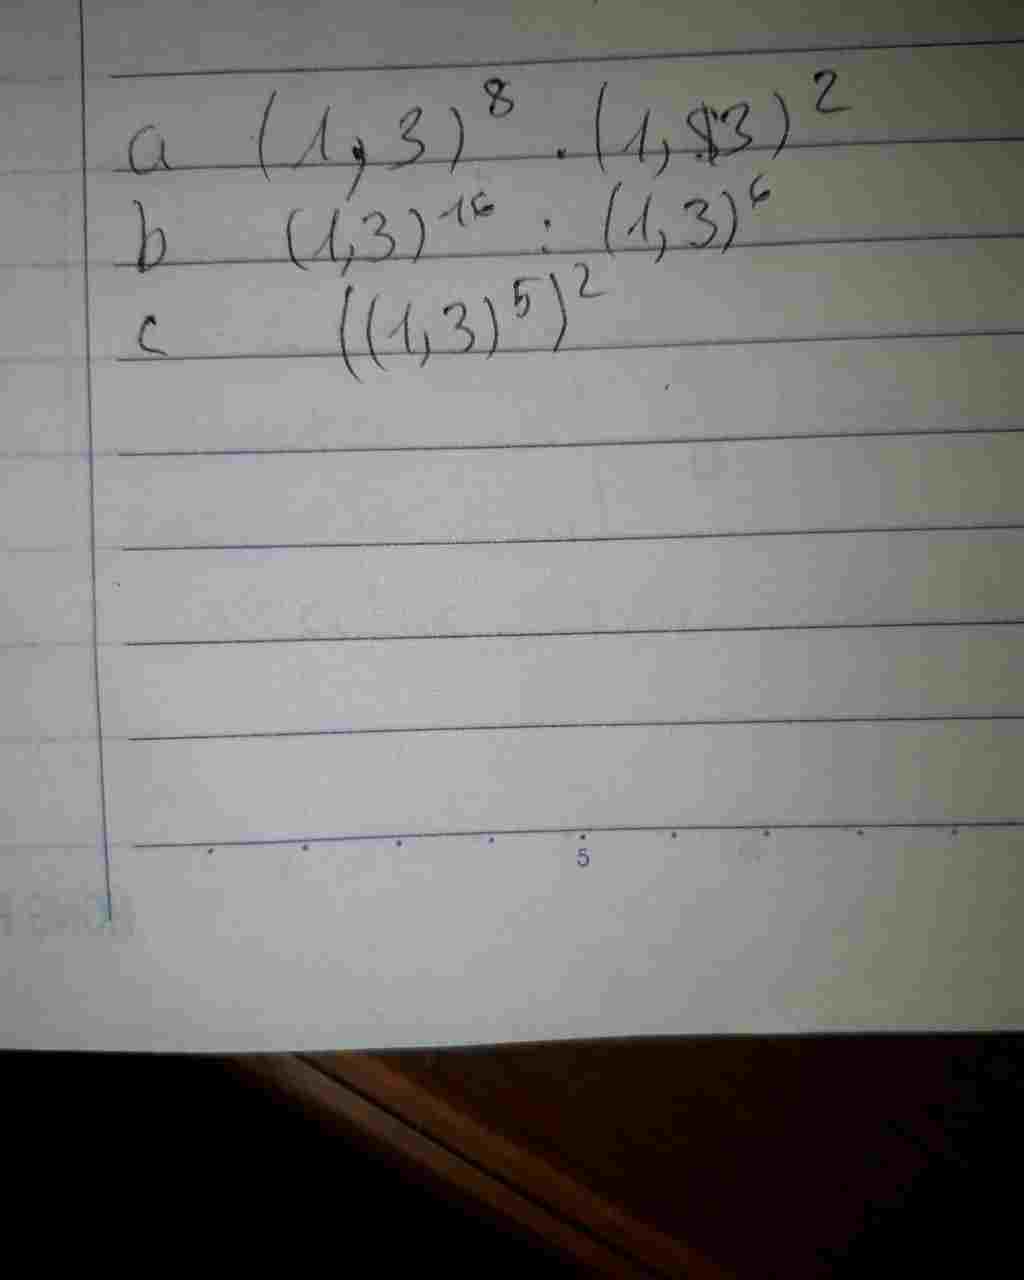 a (1,3)⁸ . (1,3)²
b (1,3)¹⁶ : (1,3)⁶
c ((1,3)⁵)²
5